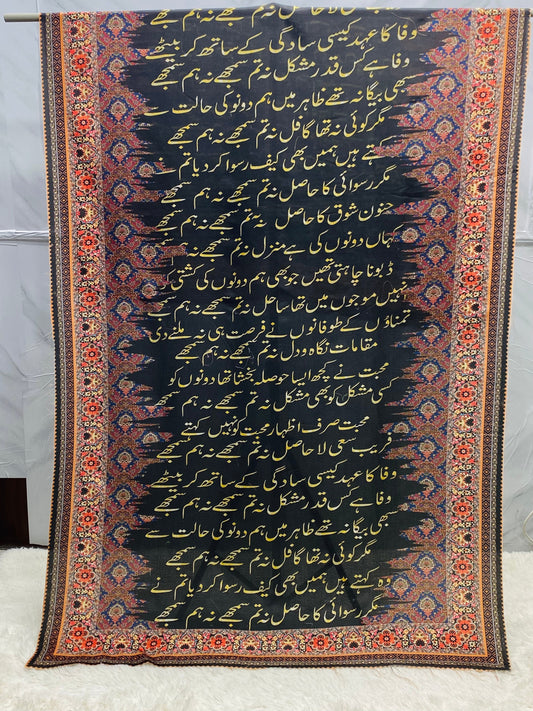 سعی لا حاصل نہ تم سمجھے نہ ہم سمجھے
وفا کا عہد کیسی سادگی کے ساتھ کر بیٹھے
وفا ہے کس قدر مشکل نہ تم سمجھے نہ ہم سمجھے
سبھی بیگانہ تھے ظاہر میں ہم دونوں کی حالت سے
مگر کوئی نہ تھا گافل نہ تم سمجھے نہ ہم سمجھے
کہتے ہیں ہمیں بھی کیف رسوا کر دیا تم نے
مگر رسوائی کا حاصل نہ تم سمجھے نہ ہم سمجھے
جنون شوق کا حاصل نہ تم سمجھے نہ ہم سمجھے
کہاں دونوں کی ہے منزل نہ تم سمجھے نہ ہم سمجھے
ڈبونا چاہتی تھیں جو بھی ہم دونوں کی کشتی کو
انہیں موجوں میں تھا ساحل نہ تم سمجھے نہ ہم سمجھے
تمناؤں کے طوفانوں نے فرصت ہی نہ ملنے دی
مقامات نگاہ و دل نہ تم سمجھے نہ ہم سمجھے
محبت نے کچھ ایسا حوصلہ بخشا تھا دونوں کو
کسی مشکل کو بھی مشکل نہ تم سمجھے نہ ہم سمجھے
محبت صرف اظہار محبت کو نہیں کہتے
فریب سعی لا حاصل نہ تم سمجھے نہ ہم سمجھے
وفا کا عہد کیسی سادگی کے ساتھ کر بیٹھے
وفا ہے کس قدر مشکل نہ تم سمجھے نہ ہم سمجھے
سبھی بیگانہ تھے ظاہر میں ہم دونو کی حالت سے
مگر کوئی نہ تھا گافل نہ تم سمجھے نہ ہم سمجھے
وہ کہتے ہیں ہمیں بھی کیف رسوا کر دیا تم نے
مگر رسوائی کا حاصل نہ تم سمجھے نہ ہم سمجھے